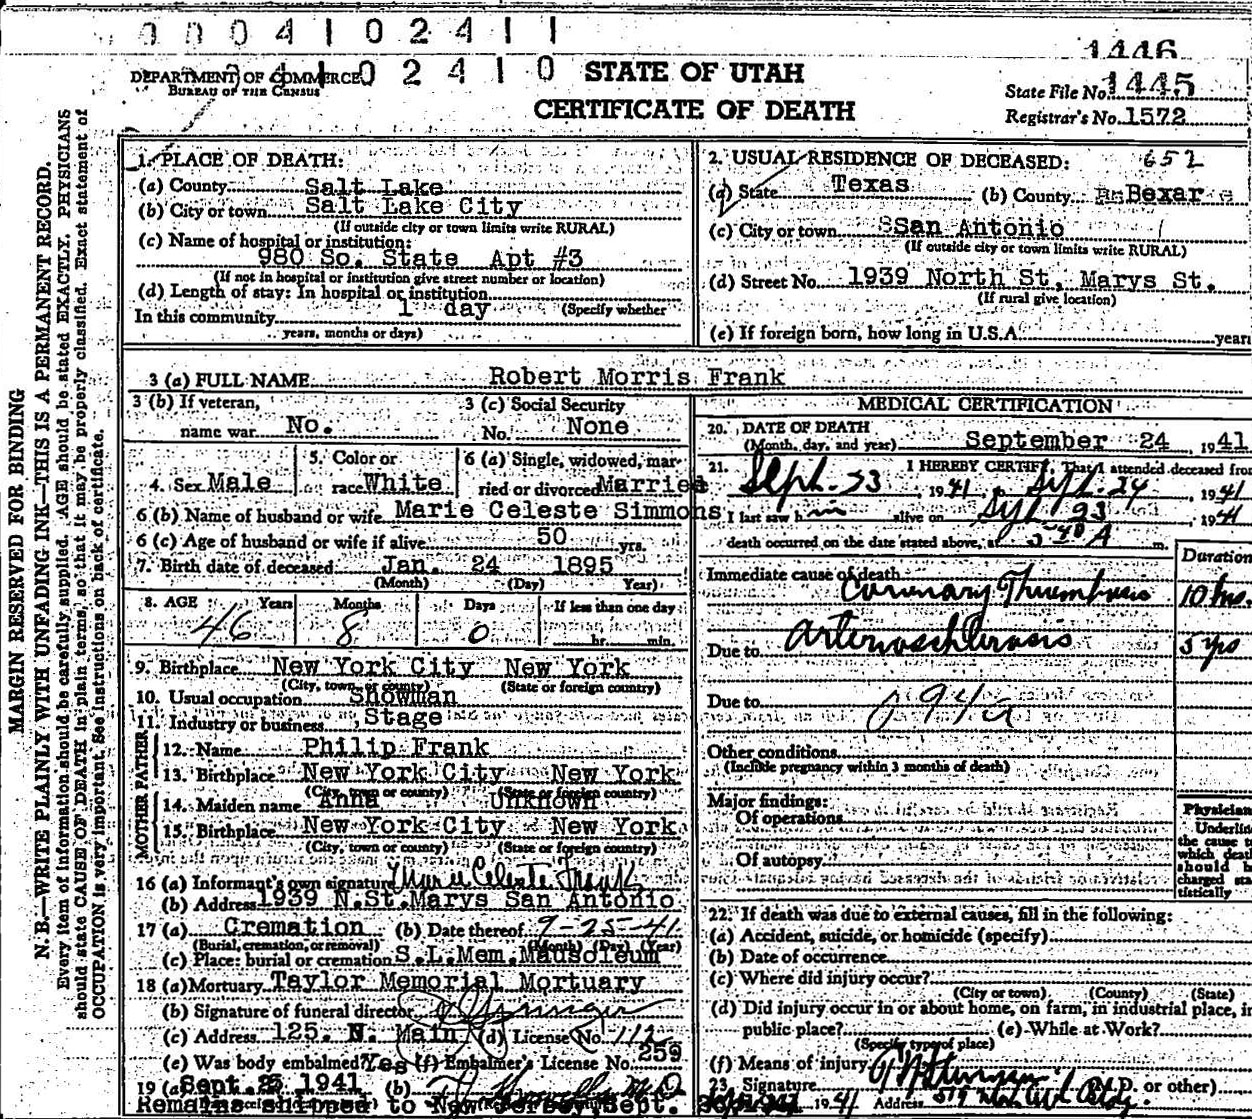 0004102411
1446
DEPARTMENT OF COMMERCE
BUREAU OF THE CENSUS
04102410
STATE OF UTAH
CERTIFICATE OF DEATH
State File No. 1445
Registrar's No. 1572
MARGIN RESERVED FOR BINDING
N. B.—WRITE PLAINLY WITH UNFADING INK—THIS IS A PERMANENT RECORD.
Every item of information should be carefully supplied. AGE should be stated EXACTLY. PHYSICIANS
should state CAUSE OF DEATH in plain terms, so that it may be properly classified. Exact statement of
OCCUPATION is very important. See instructions on back of certificate.
1. PLACE OF DEATH:
(a) County Salt Lake
(b) City or town Salt Lake City
(If outside city or town limits write RURAL)
(c) Name of hospital or institution:
980 So. State Apt #3
(If not in hospital or institution give street number or location)
(d) Length of stay: In hospital or institution
In this community 1 day (Specify whether
years, months or days)
2. USUAL RESIDENCE OF DECEASED: 652
(a) State Texas (b) County Bexar
(c) City or town San Antonio
(If outside city or town limits write RURAL)
(d) Street No. 1939 North St, Marys St.
(If rural give location)
(e) If foreign born, how long in U.S.A. years
3 (a) FULL NAME Robert Morris Frank
3 (b) If veteran, name war No.
3 (c) Social Security No. None
4. Sex Male
5. Color or race White
6 (a) Single, widowed, married or divorced Married
6 (b) Name of husband or wife Marie Celeste Simmons
6 (c) Age of husband or wife if alive 50 yrs.
7. Birth date of deceased Jan. 24 1895
(Month) (Day) Year)
8. AGE Years Months Days If less than one day
46 8 0 hr. min.
9. Birthplace New York City New York
(City, town, or county) (State or foreign country)
10. Usual occupation Showman
11. Industry or business Stage
FATHER
12. Name Philip Frank
13. Birthplace New York City New York
(City, town or county) (State or foreign country)
MOTHER
14. Maiden name Anna Unknown
15. Birthplace New York City New York
(City, town or county) (State or foreign country)
16 (a) Informant's own signature Marie Celeste Frank
(b) Address 1939 N.St.Marys San Antonio
17 (a) Cremation (b) Date thereof 9-25-41
(Burial, cremation, or removal) (Month) (Day) (Year)
(c) Place: burial or cremation S.L.Mem.Mausoleum
18 (a) Mortuary Taylor Memorial Mortuary
(b) Signature of funeral director
(c) Address 125. N. Main (d) License No. 112
(e) Was body embalmed? Yes (f) Embalmer's License No. 259
19 (a) Sept. 25 1941 (b) M.D.
Remains shipped to New Jersey, Sept.
MEDICAL CERTIFICATION
20. DATE OF DEATH
(Month, day, and year) September 24, 1941
21. I HEREBY CERTIFY, That I attended deceased from
Sept. 23, 1941, Sept. 24, 1941
I last saw him alive on Sept 23, 1941
death occurred on the date stated above, at 5 40 A m.
Duration
Immediate cause of death Coronary Thrombosis 10 hrs.
Due to Arterioschlerosis 5 yrs
Due to 094a
Other conditions
(Include pregnancy within 3 months of death)
Major findings:
Of operations
Of autopsy
Physician
Underline
the cause to
which death
should be
charged sta-
tistically
22. If death was due to external causes, fill in the following:
(a) Accident, suicide, or homicide (specify)
(b) Date of occurrence
(c) Where did injury occur?
(City or town) (County) (State)
(d) Did injury occur in or about home, on farm, in industrial place, in
public place? (e) While at Work?
(Specify type of place)
(f) Means of injury
23. Signature (M.D. or other)
1941 Address 579